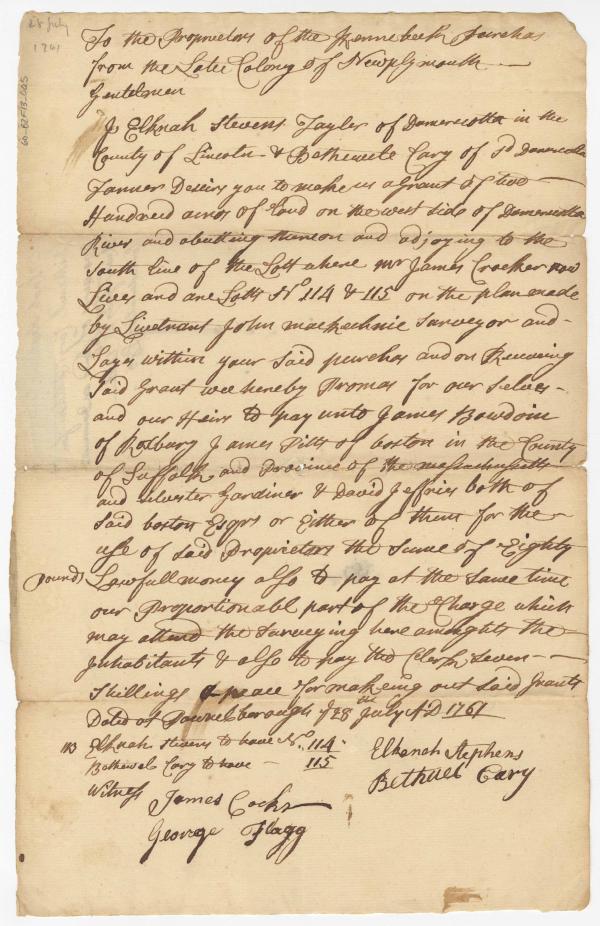 28 July
1761
60-82F13.005
To the Proprietors of the Kennebeck Purchas
from the Late Colony of Newplymouth
Gentelmen
I Elknah Stevens Tayler of Damerscotta in the
County of Lincoln & Bethewele Cary of sd Damerscotta
Farmer Desiers you to make us a Grant of two
Hundred acres of Land on the west side of Damerscotta
River and abutting thereon and adjoying to the
South line of the Lott where mr James Crocker now
Lives and are Lotts No 114 & 115 on the plan made
by Lieutnant John mackechnie Surveyor and
Layes within your said purchas and on Receiving
said Grant wee hereby Promas for our selves
and our Heirs to pay unto James Bowdoin
of Roxbury James Pitts of boston in the County
of Suffolk and Province of the massachusetts
and silvester Gardiner & David Jeffries both of
said boston Esqrs or Either of them for the
use of said Proprietors the Sume of Eighty
pounds Lawfull money also to pay at the same time
our Proportionabl part of the Charge which
may attend the Surveying here amonghts the
Inhabitants & also to pay the Clerk Seven
Shillings a peace for makeing out said Grants
Dated at Pownelborough ye 28th July AD 1761
NB Elknah Stevens to have No. 114
Bethewel Cary to have 115
Elkenah Stephens
Bethuel Cary
Witness
James Cocks
George Flagg